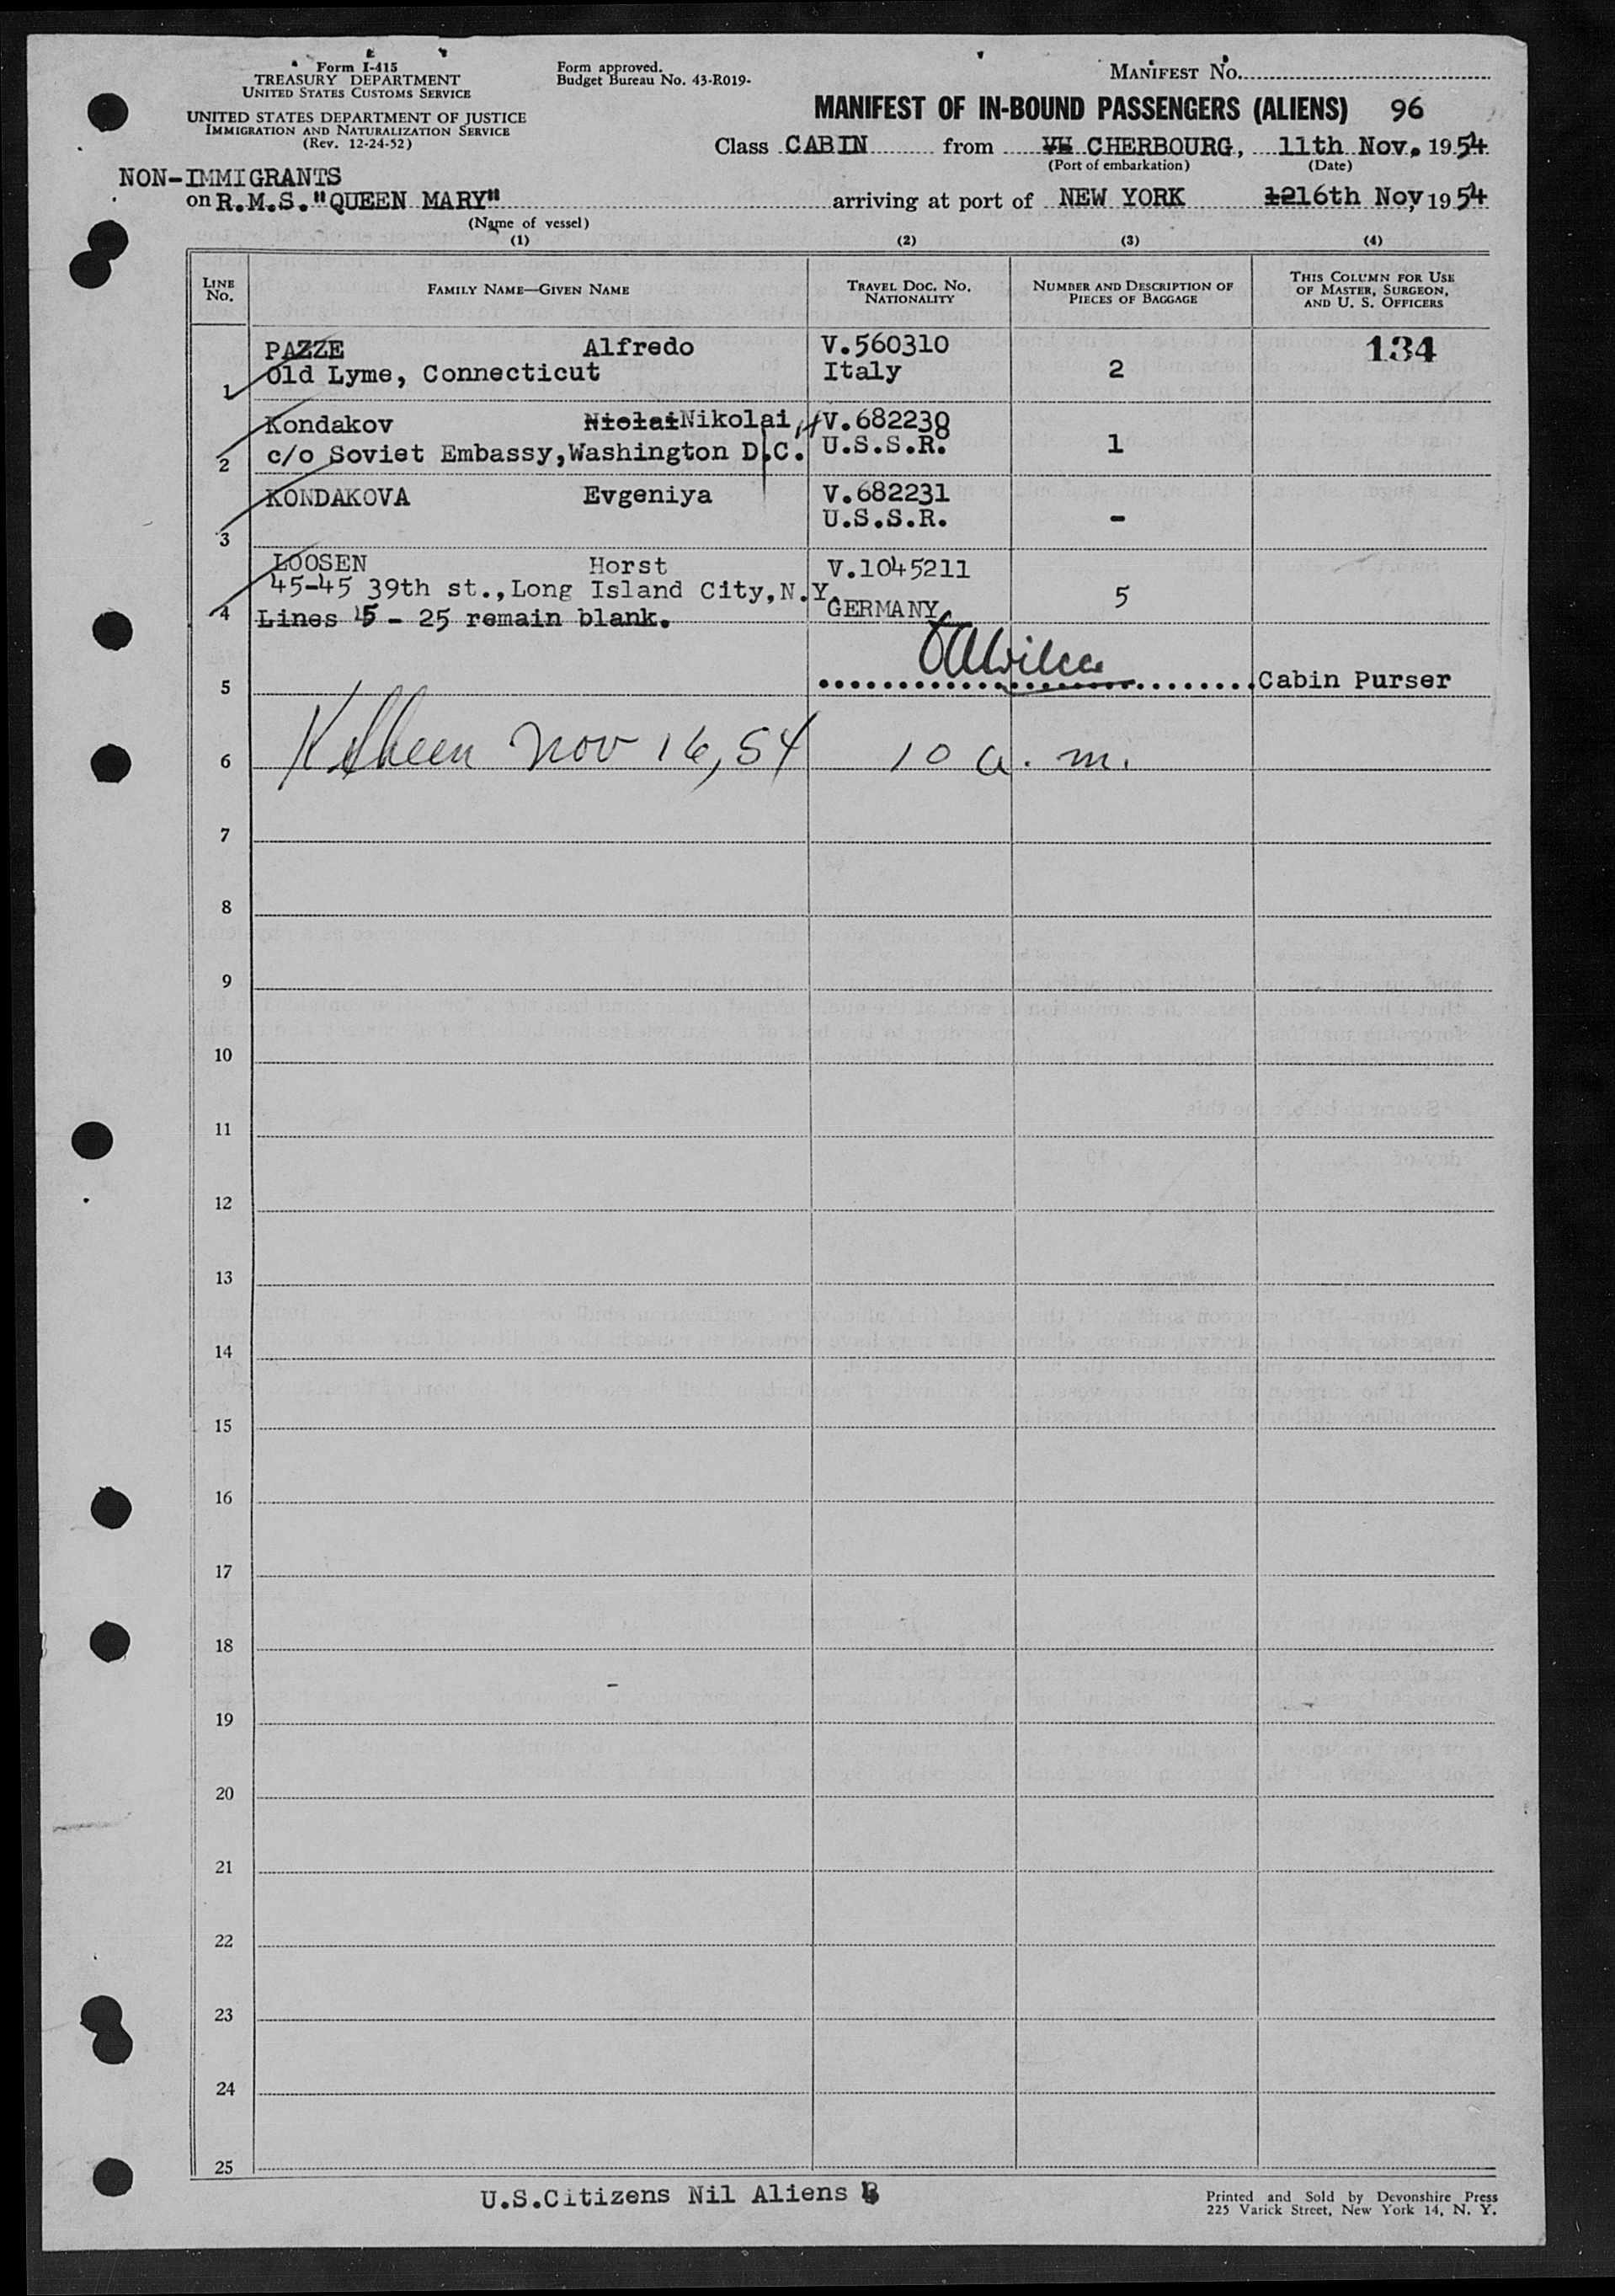 Form I-415
TREASURY DEPARTMENT
UNITED STATES CUSTOMS SERVICE
UNITED STATES DEPARTMENT OF JUSTICE
IMMIGRATION AND NATURALIZATION SERVICE
(Rev. 12-24-52)
Form approved.
Budget Bureau No. 43-R019-
MANIFEST No.
MANIFEST OF IN-BOUND PASSENGERS (ALIENS) 96
Class CABIN from CHERBOURG, 11th Nov. 1954
(Port of embarkation) (Date)
NON-IMMIGRANTS
on R.M.S."QUEEN MARY" arriving at port of NEW YORK 16th Nov 1954
(Name of vessel)
(1) (2) (3) (4)
LINE No. FAMILY NAME—GIVEN NAME TRAVEL DOC. No. NATIONALITY NUMBER AND DESCRIPTION OF PIECES OF BAGGAGE THIS COLUMN FOR USE OF MASTER, SURGEON, AND U. S. OFFICERS
PAZZE Alfredo V.560310 134
1 Old Lyme, Connecticut Italy 2
Kondakov Nikolai, V.682230
2 c/o Soviet Embassy,Washington D.C. U.S.S.R. 1
KONDAKOVA Evgeniya V.682231
3 U.S.S.R. -
LOOSEN Horst V.1045211
45-45 39th st.,Long Island City,N.Y. GERMANY 5
4 Lines 5 - 25 remain blank.
5 Cabin Purser
6 Nov 16, 54 10 a. m.
7
8
9
10
11
12
13
14
15
16
17
18
19
20
21
22
23
24
25
U.S.Citizens Nil Aliens
Printed and Sold by Devonshire Press
225 Varick Street, New York 14, N. Y.